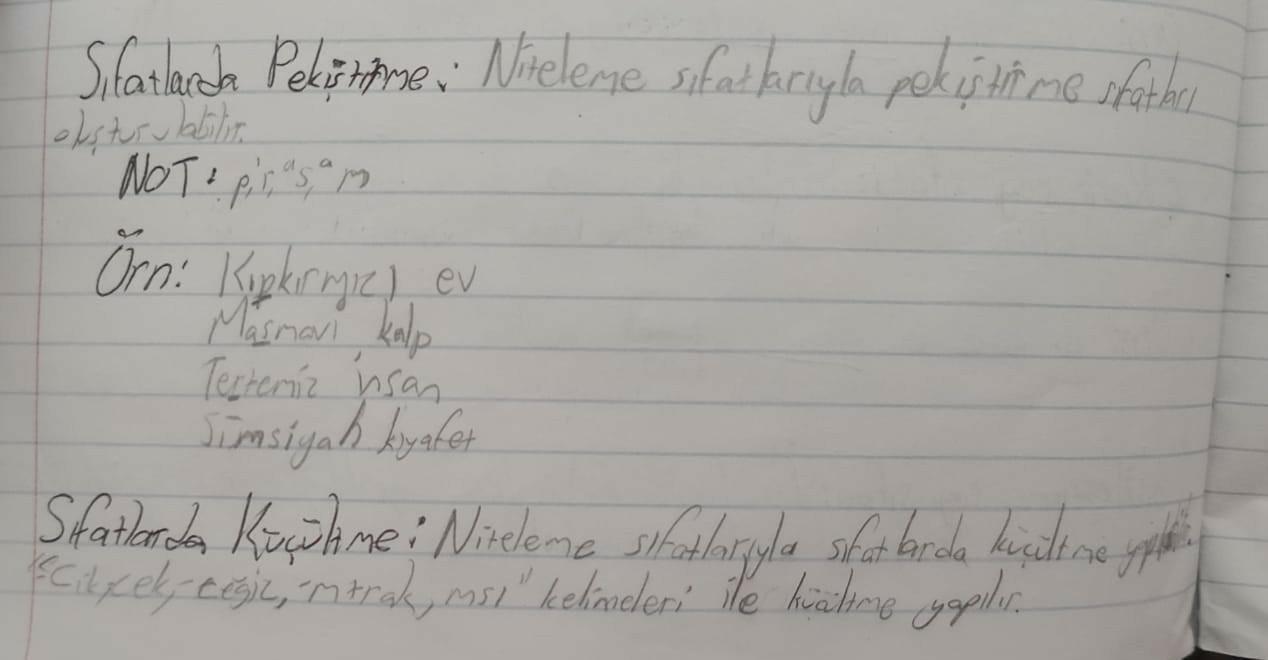 Sıfatlarda Pekiştirme: Niteleme sıfatlarıyla pekiştirme sıfatları
oluşturulabilir.
NOT: p, r, s, m
Örn: Kıpkırmızı ev
Masmavi kalp
Tertemiz insan
Simsiyah kıyafet
Sıfatlarda Küçültme: Niteleme sıfatlarıyla sıfatlarda küçültme
"Cik, cek, -ceğiz, -mtrak, msı" kelimeleri ile küçültme yapılır.